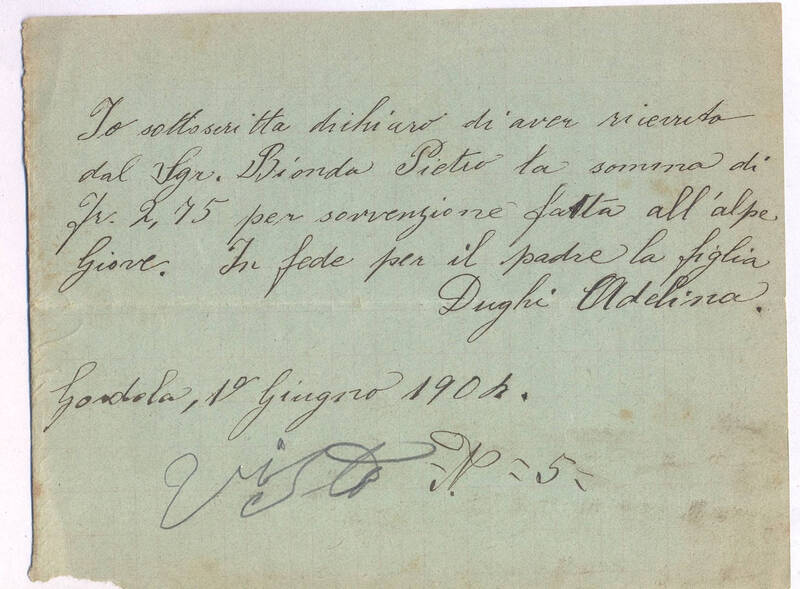 Io sottoscritta dichiaro di aver ricevuto
dal Sgr. Bionda Pietro la somma di
Fr. 2,75 per sovvenzione fatta all'alpe
Giove. In fede per il padre la figlia
Dughi Adelina.
Gordola, 1º Giugno 1904.
Visto N. = 5 =